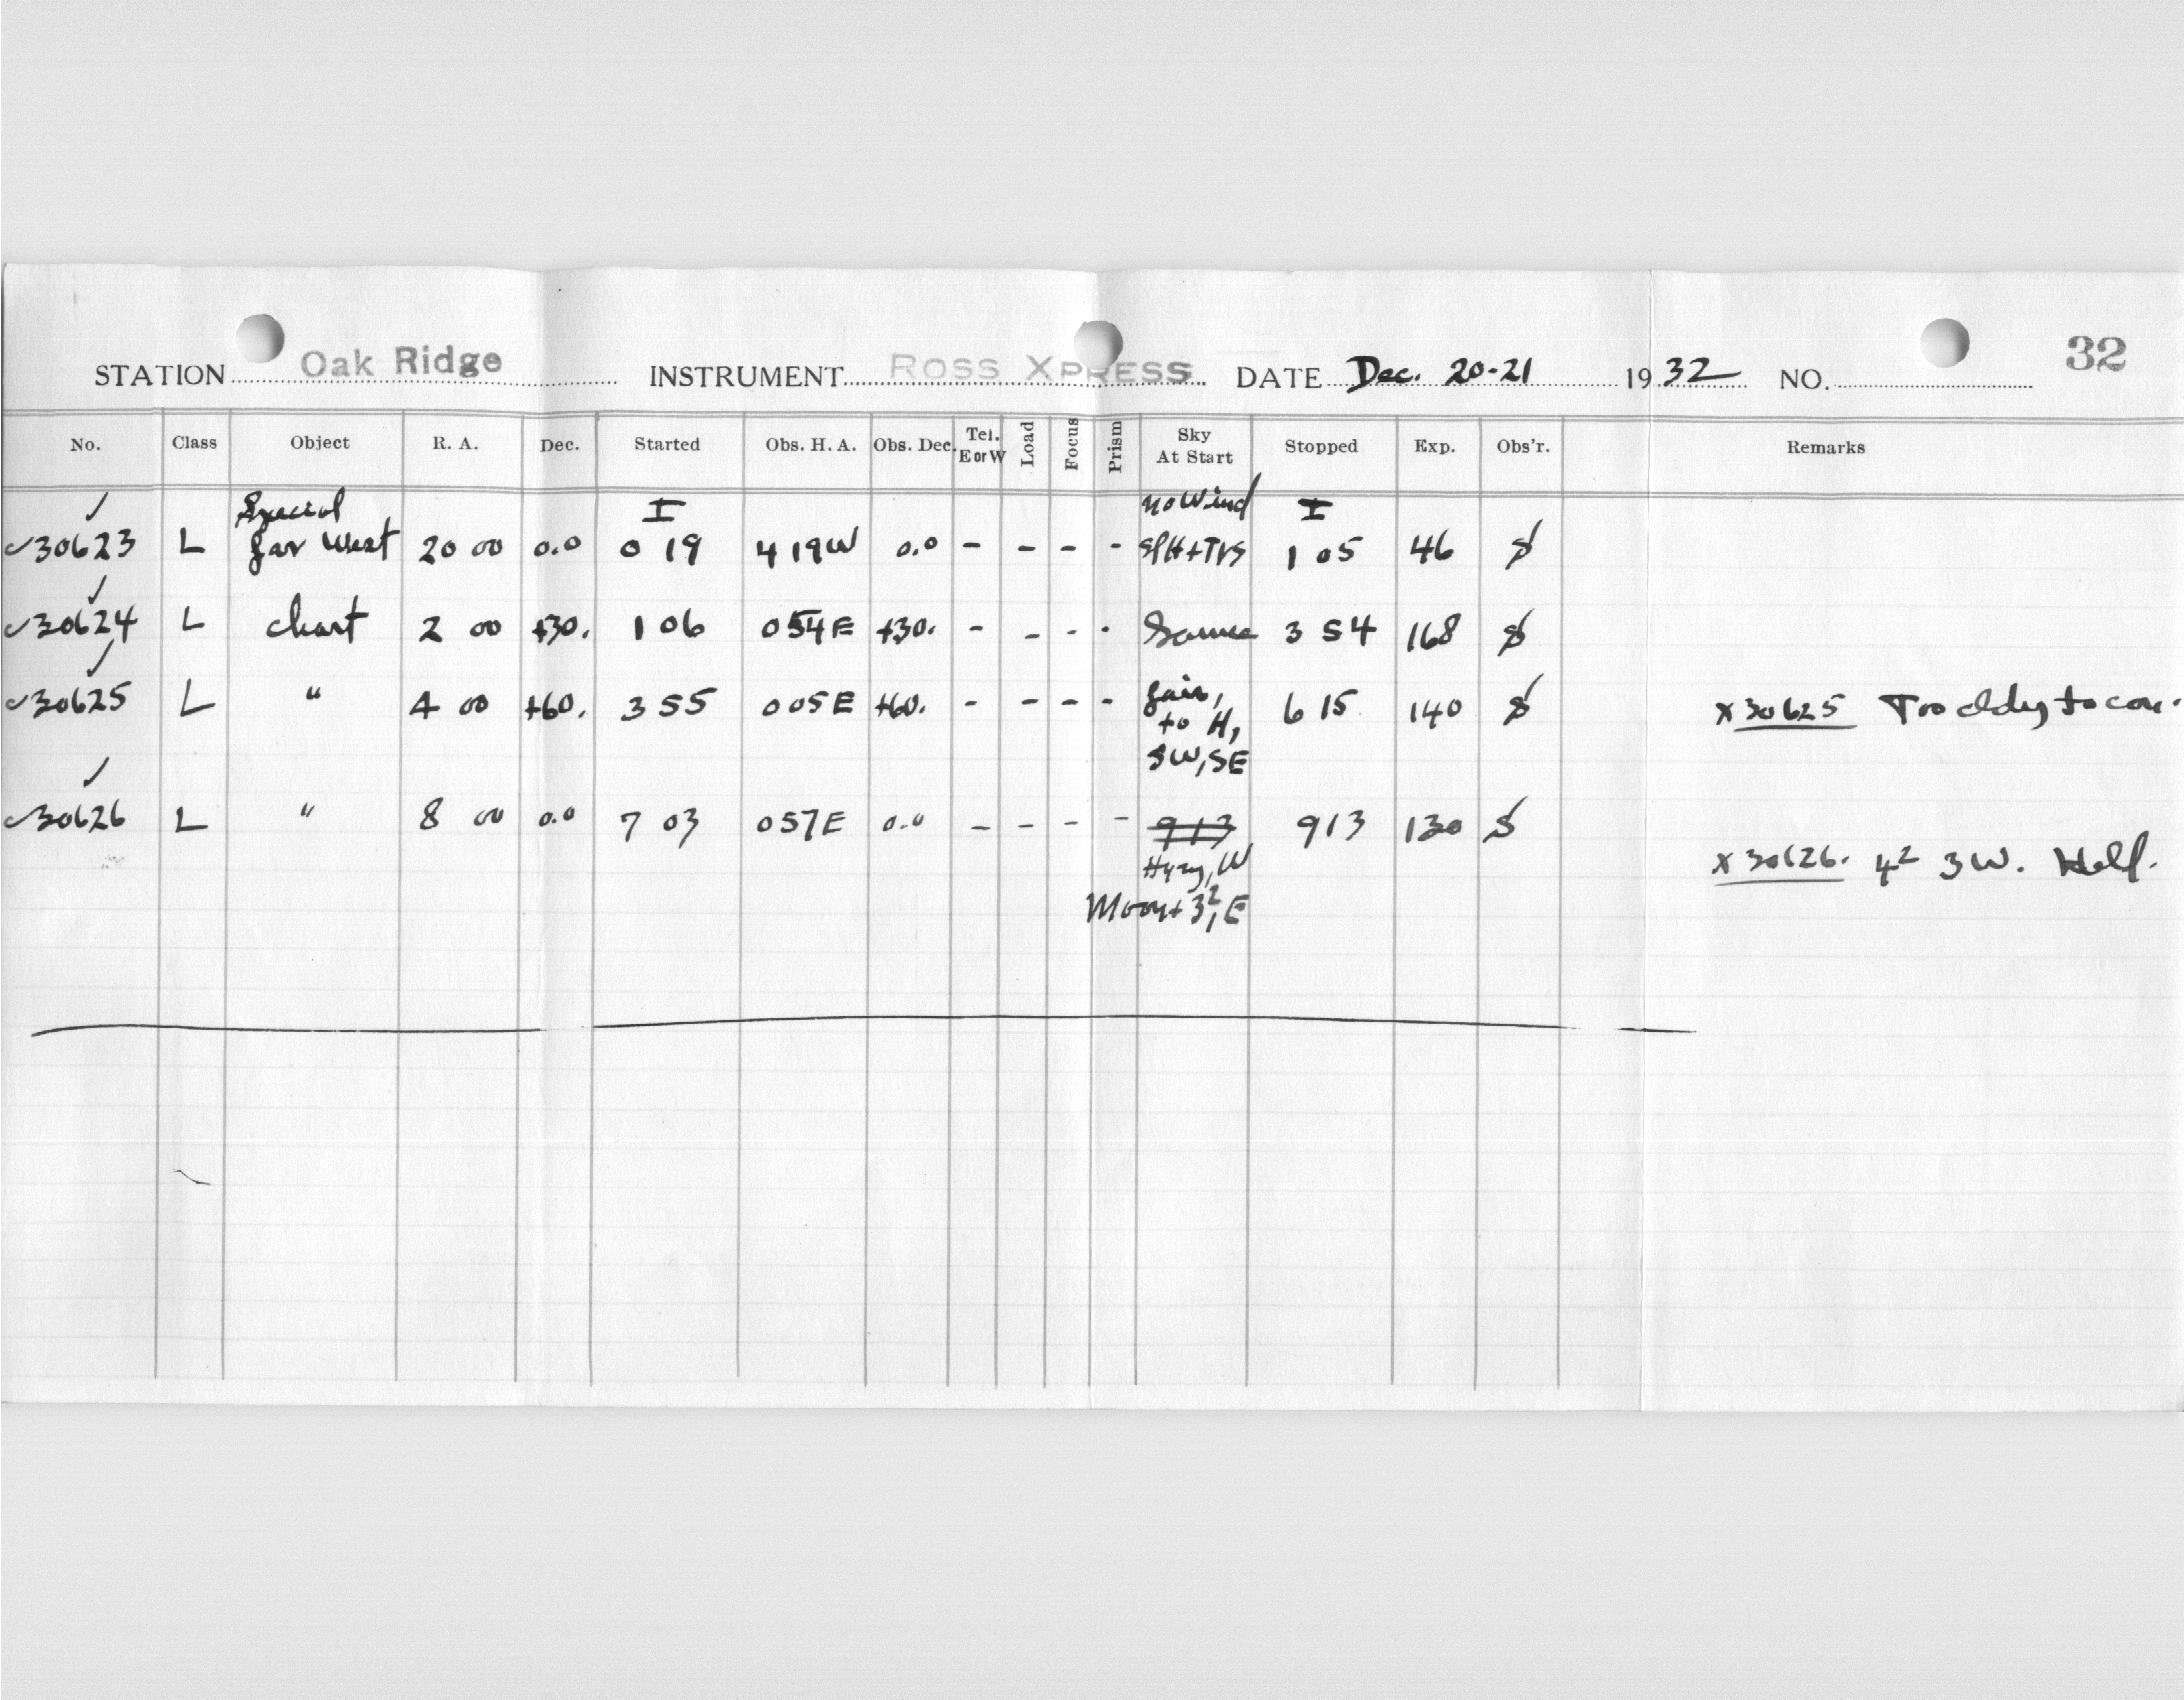 32
STATION Oak Ridge INSTRUMENT Ross Xpress DATE Dec. 20-21 1932 NO.
No. Class Object R. A. Dec. Started Obs. H. A. Obs. Dec. Tel. E or W Load Focus Prism Sky At Start Stopped Exp. Obs'r. Remarks
Special I no Wind I
30623 L far West 20 00 0.0 0 19 4 19W 0.0 - - - - 1 05 46 S
30624 L chart 2 00 +30. 1 06 0 54E +30. - - - - Same 3 54 168 S
30625 L " 4 00 +60. 3 55 0 05E +60. - - - - fair, 6 15 140 S x 30625 Too cldy to con.
to H,
SW, SE
30626 L " 8 00 0.0 7 03 0 57E 0.0 - - - - 913 9 13 130 S
Hyzy, W x 30626. 4² 3W. Held.
Moon+3²,E